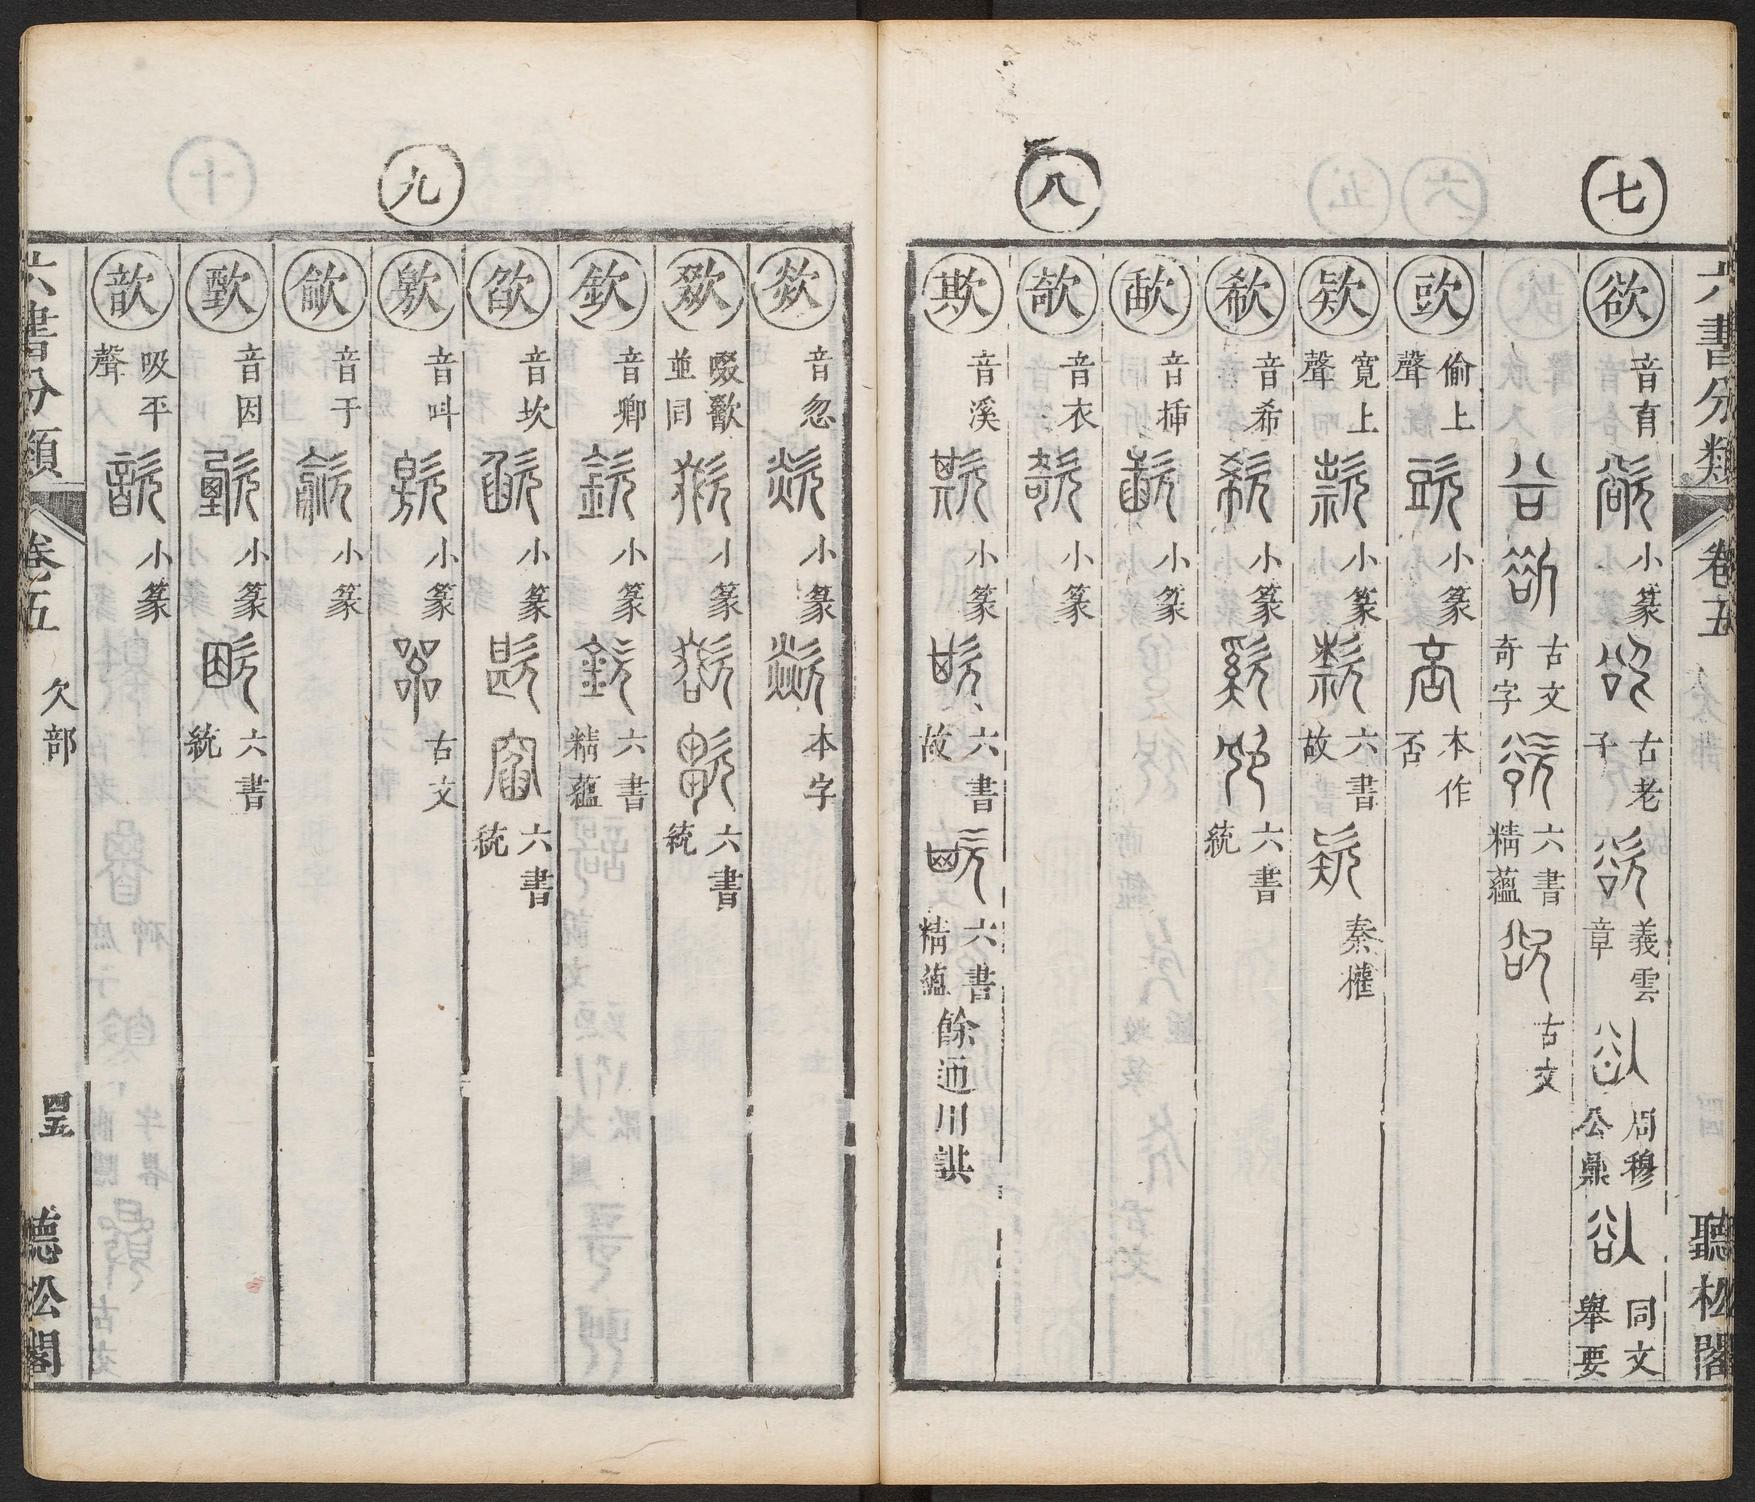 六書分類 卷五 聽松閣
七
欲 音育 小篆 古老子 義雲章 周穆公鼎 同文舉要
古文奇字 六書精蘊 古文
㰯 偷上聲 小篆 本作否
款 寬上聲 小篆 六書故 秦權
欷 音希 小篆 六書統
歃 音挿 小篆
八
欹 音衣 小篆
欺 音溪 小篆 六書故 六書精蘊 餘通用諆
欻 音忽 小篆 本字
歠 並同 小篆 六書統
欽 音卿 小篆 六書精蘊
欿 音坎 小篆 六書統
九
音叫 小篆 古文
歈 音于 小篆
音因 小篆 六書統
歆 吸平聲 小篆
六書分類 卷五 欠部 四五 聽松閣